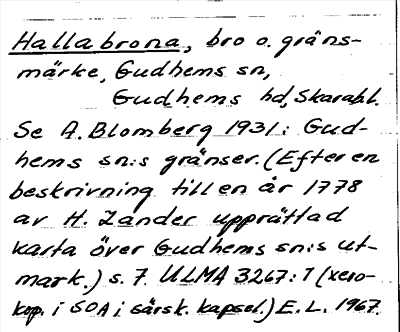 Hallabrona, bro o. gräns-
märke, Gudhems sn,
Gudhems hd, Skarab.l.
Se A. Blomberg 1931: Gud-
hems sn:s gränser. (Efter en
beskrivning till en år 1778
av H. Zander upprättad
karta över Gudhems sn:s ut-
mark.) s. 7. ULMA 3267:1 (xero-
kop. i SOA i särsk. kapsel.) E.L. 1967.